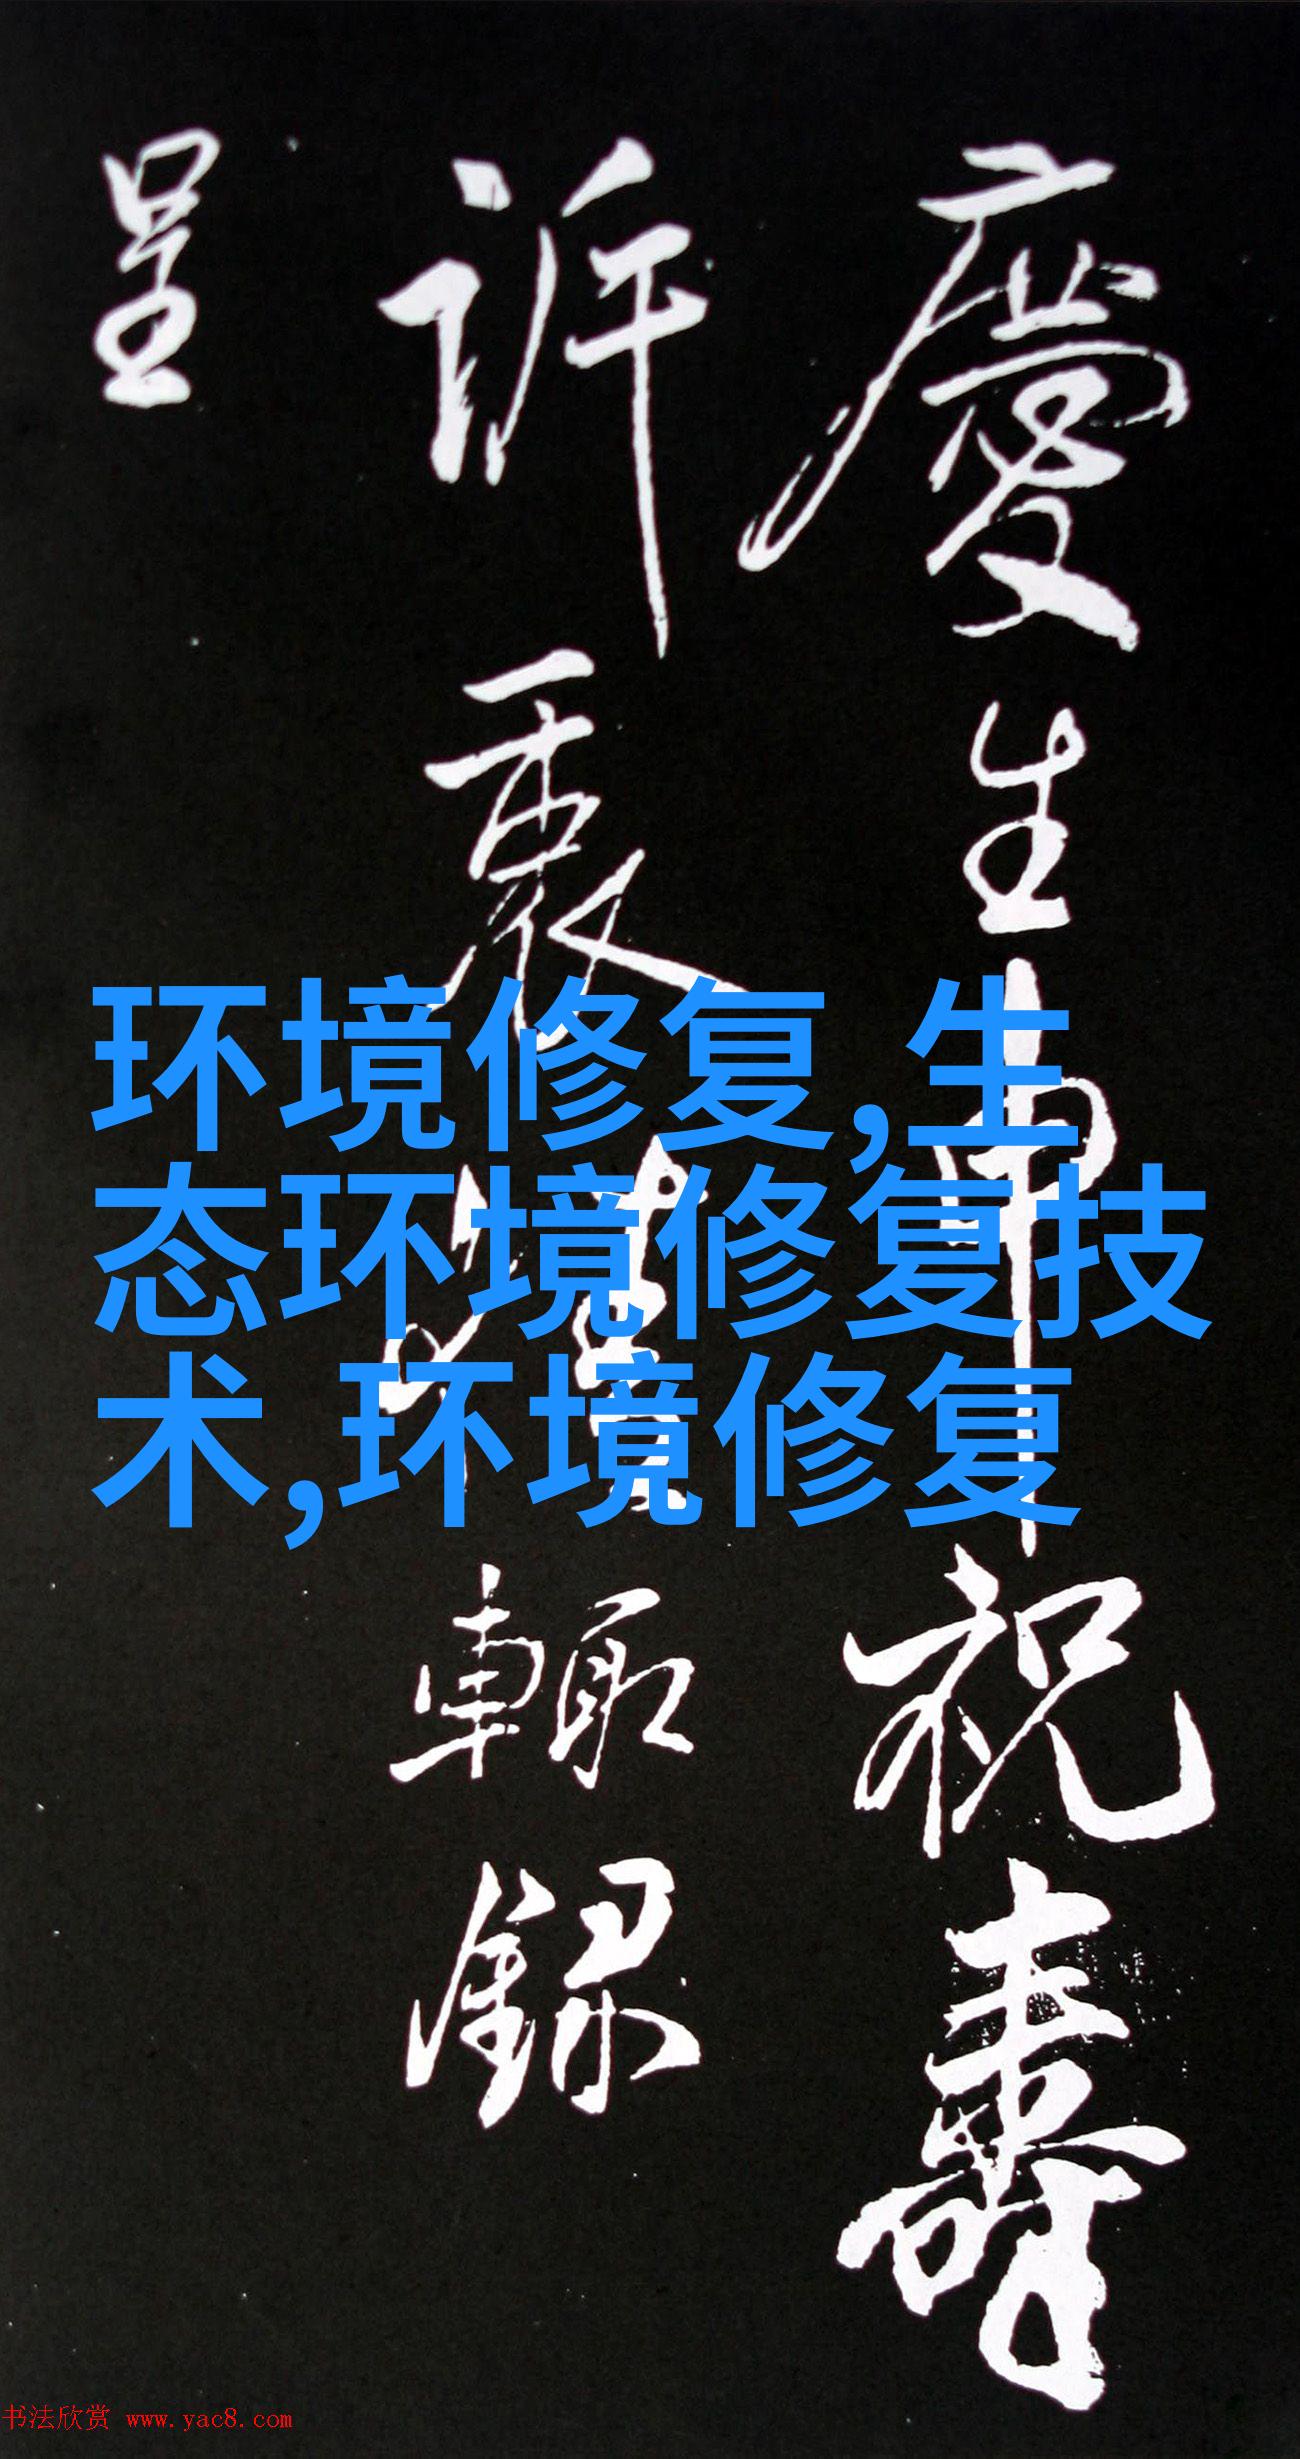 慶生申祝壽
訢衷
輙録
呈
环境修复,生
态环境修复技
术,环境修复
书法欣赏 www.yac8.com